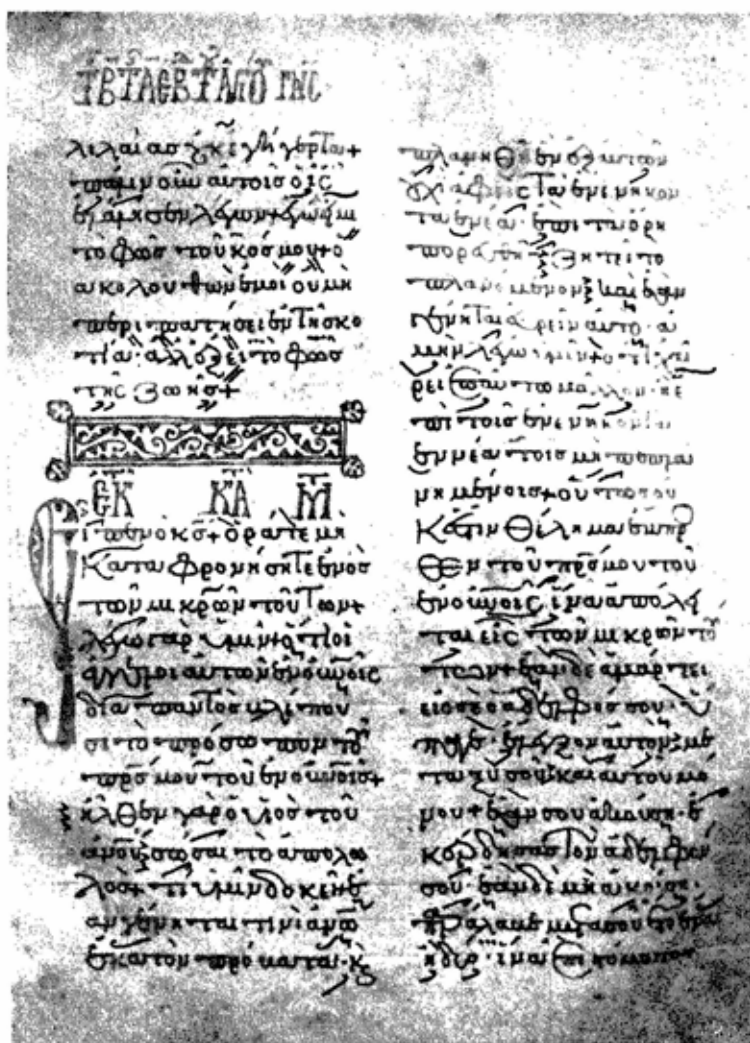 λιλαίας οὐκ ἐγήγερται+
πάλιν οὖν αὐτοῖς ὁ ις
ἐλάλησεν λέγων+ ἐγώ εἰμι
τὸ φῶς τοῦ κόσμου+ ὁ
ἀκολουθῶν ἐμοὶ οὐ μὴ
περιπατήσει ἐν τῆ σκο
τία· ἀλλ' ἕξει τὸ φῶς
τῆς ζωῆς+
ΕΚ ΚΑ Μ
Εἶπεν ὁ κς+ ὁρᾶτε μὴ
καταφρονήσητε ἑνὸς
τῶν μικρῶν τούτων+
λέγω γὰρ ὑμῖν+ ὅτι οἱ
ἄγγελοι αὐτῶν ἐν οὐνοῖς
διαπαντὸς βλέπου
σι τὸ πρόσωπον τοῦ
πρς μου τοῦ ἐν οὐνοῖς+
ἦλθεν γὰρ ὁ υἱὸς τοῦ
ανου σῶσαι τὸ ἀπολω
λός+ τί ὑμῖν δοκεῖ ἐ
ὰν γένηται τινὶ ανω
ἑκατὸν πρόβατα· κ
πλανηθῆ ἓν ἐξ αὐτῶν
οὐχ ἀφεὶς τὰ ἐνενηκον
ταεννέα· ἐπὶ τὰ ὄρη
πορευθεὶς ζητεῖ τὸ
πλανώμενον; καὶ ἐὰν
γένηται εὑρεῖν αὐτό· ἀ
μὴν λέγω ὑμῖν+ ὅτι χαί
ρει ἐπ αὐτῶ μᾶλλον· ἢ
ἐπὶ τοῖς ἐνενηκοντα
εννέα τοῖς μὴ πεπλα
νημένοις+ οὕτως οὐ
κ ἔστιν θέλημα ἔμπροσ
θεν τοῦ πρς μου τοῦ
ἐν οὐνοῖς ἵνα ἀπόλη
ται εἷς τῶν μικρῶν τού
των+ ἐὰν δὲ ἁμαρτήσει
εἰς σὲ ὁ ἀδελφός σου·
ὕπαγε ἔλεγξον αὐτὸν με
ταξὺ σοῦ καὶ αὐτοῦ μό
νου+ ἐάν σου ἀκούση· ἐ
κέρδησας τὸν ἀδελφόν
σου· ἐὰν δὲ μὴ ἀκούση·
παράλαβε μετὰ σοῦ ἔτι ἕνα
ἢ δύο· ἵνα ἐπὶ στόματος